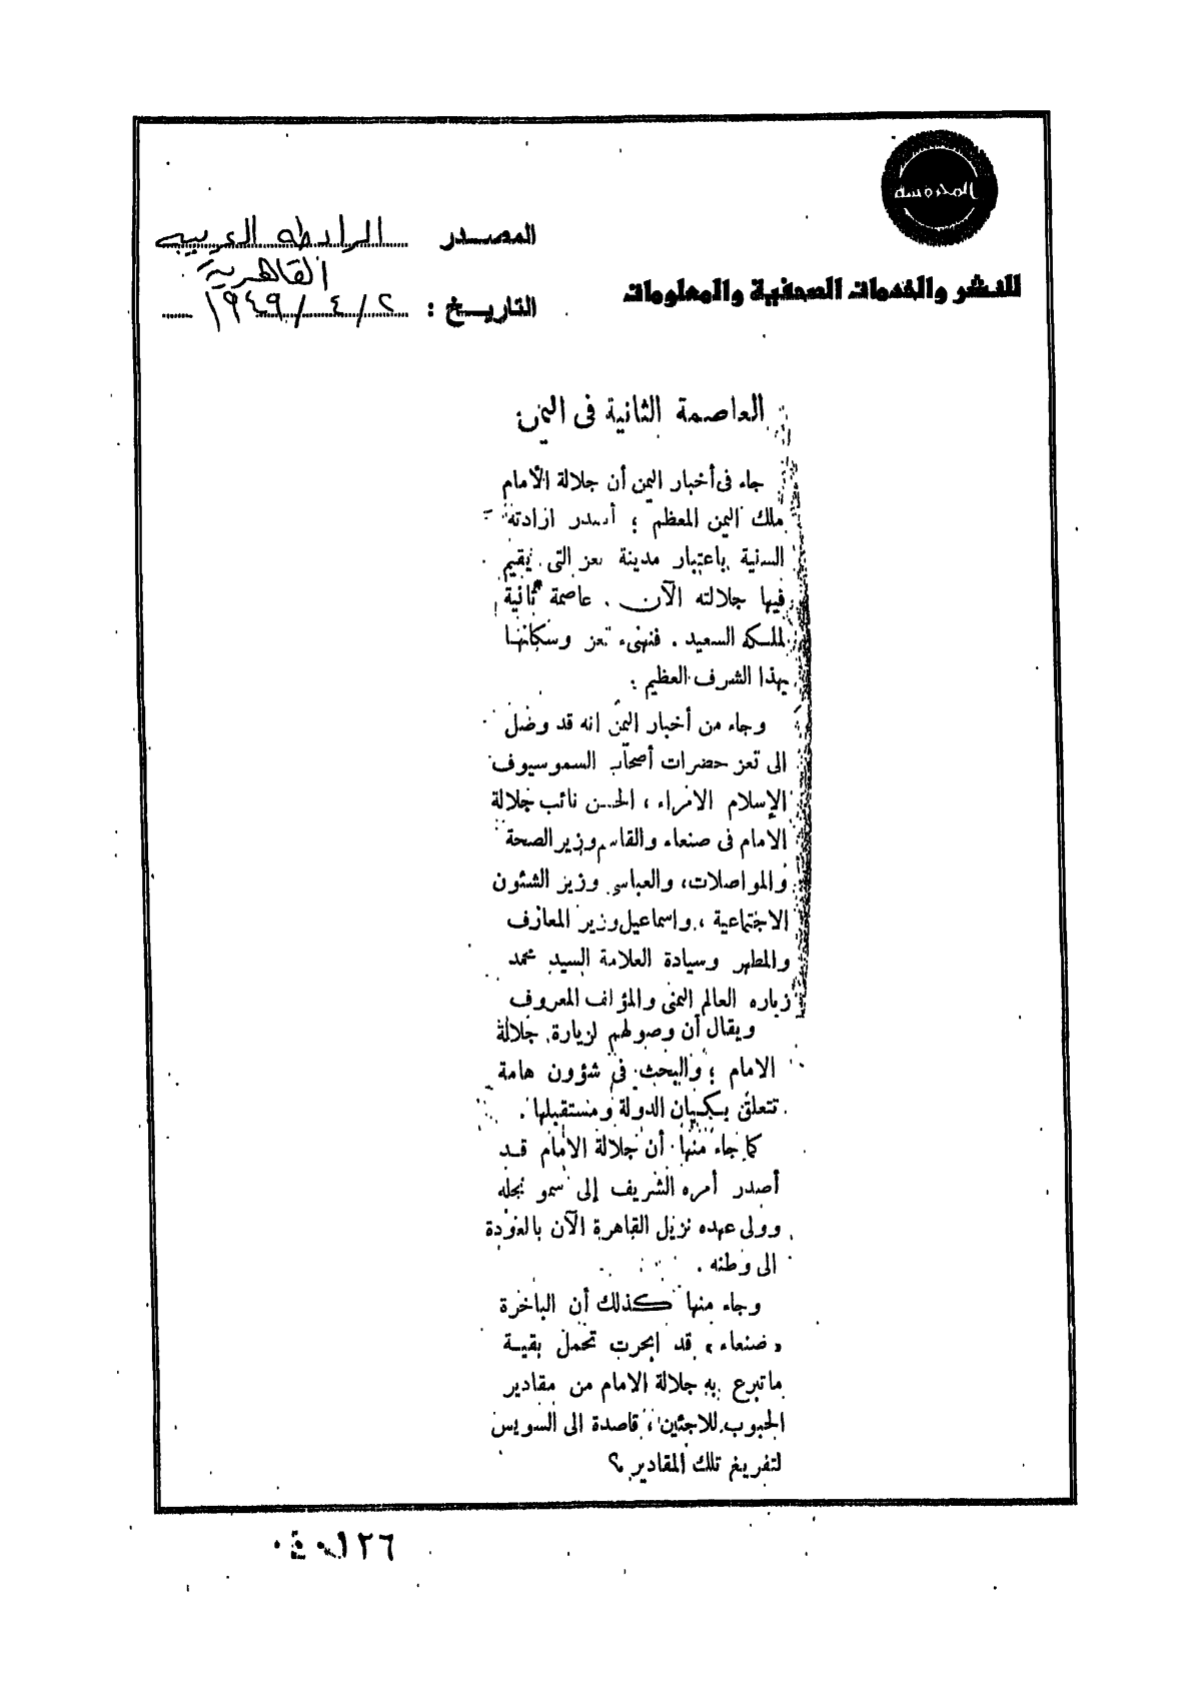 المحروسة
للنشر والخدمات الصحفية والمعلومات
المصدر الرابطه العربيه
القاهرية
التاريخ : ٢ / ٤ / ١٩٤٩
العاصمة الثانية فى اليمن
جاء فى أخبار اليمن أن جلالة الأمام
ملك اليمن المعظم ؛ أصدر ارادته
السنية باعتبار مدينة تعز التى يقيم
فيها جلالته الآن . عاصمة ثانية
لملكه السعيد . فنهنىء تعز وسكانها
بهذا الشرف العظيم .
وجاء من أخبار اليمن انه قد وصل
الى تعز حضرات أصحاب السموسيوف
الإسلام الامراء ، الحسن نائب جلالة
الامام فى صنعاء والقاسم وزير الصحة
والمواصلات، والعباس وزير الشئون
الاجتماعية ، واسماعيل وزير المعارف
والمطهر وسيادة العلامة السيد محمد
زباره العالم اليمنى والمؤلف المعروف
ويقال أن وصولهم لزيارة جلالة
الامام ؛ والبحث فى شؤون هامة
تتعلق بكيان الدولة ومستقبلها .
كما جاء منها أن جلالة الامام قد
أصدر أمره الشريف إلى سمو نجله
وولى عهده نزيل القاهرة الآن بالعودة
الى وطنه .
وجاء منها كذلك أن الباخرة
« صنعاء » قد ابحرت تحمل بقية
ماتبرع به جلالة الامام من مقادير
الحبوب للاجئين ، قاصدة الى السويس
لتفريغ تلك المقادير ؟
٠٤٠١٢٦